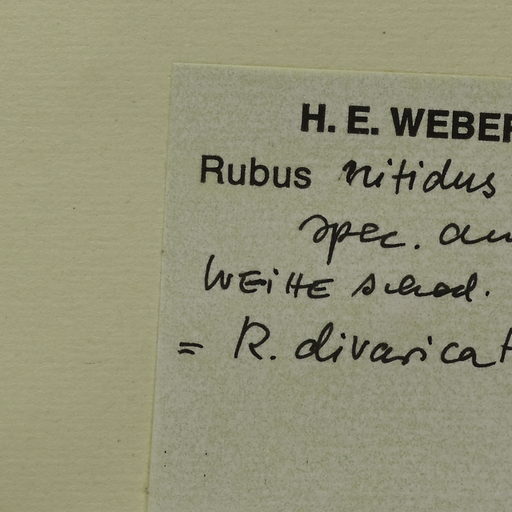 H. E. WEBER
Rubus nitidus
spec. au
WEIHE sched.
= R. divaricat